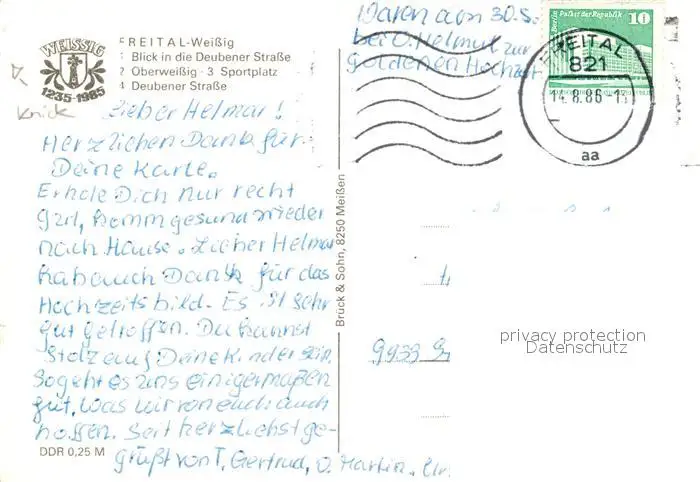 WEISSIG
1235-1985
FREITAL-Weißig
1 Blick in die Deubener Straße
2 Oberweißig · 3 Sportplatz
4 Deubener Straße
Knick
Waren am 30.5.
bei O. Helmut zur
goldenen Hochzeit
Berlin Palast der Republik 10
FREITAL
821
14.8.86-1
aa
Lieber Helmar!
Herzlichen Dank für
Deine Karte.
Erhole Dich nur recht
gut, komm gesund wieder
nach Hause. Lieber Helmar
hab auch Dank für das
Hochzeitsbild. Es ist sehr
gut getroffen. Du kannst
Stolz auf Deine Kinder sein.
So geht es uns einigermaßen
gut, was wir von euch auch
hoffen. Seit herzlichst ge-
grüßt von T. Gertrud, O. Martin.
DDR 0,25 M
Brück & Sohn, 8250 Meißen
9933
privacy protection
Datenschutz